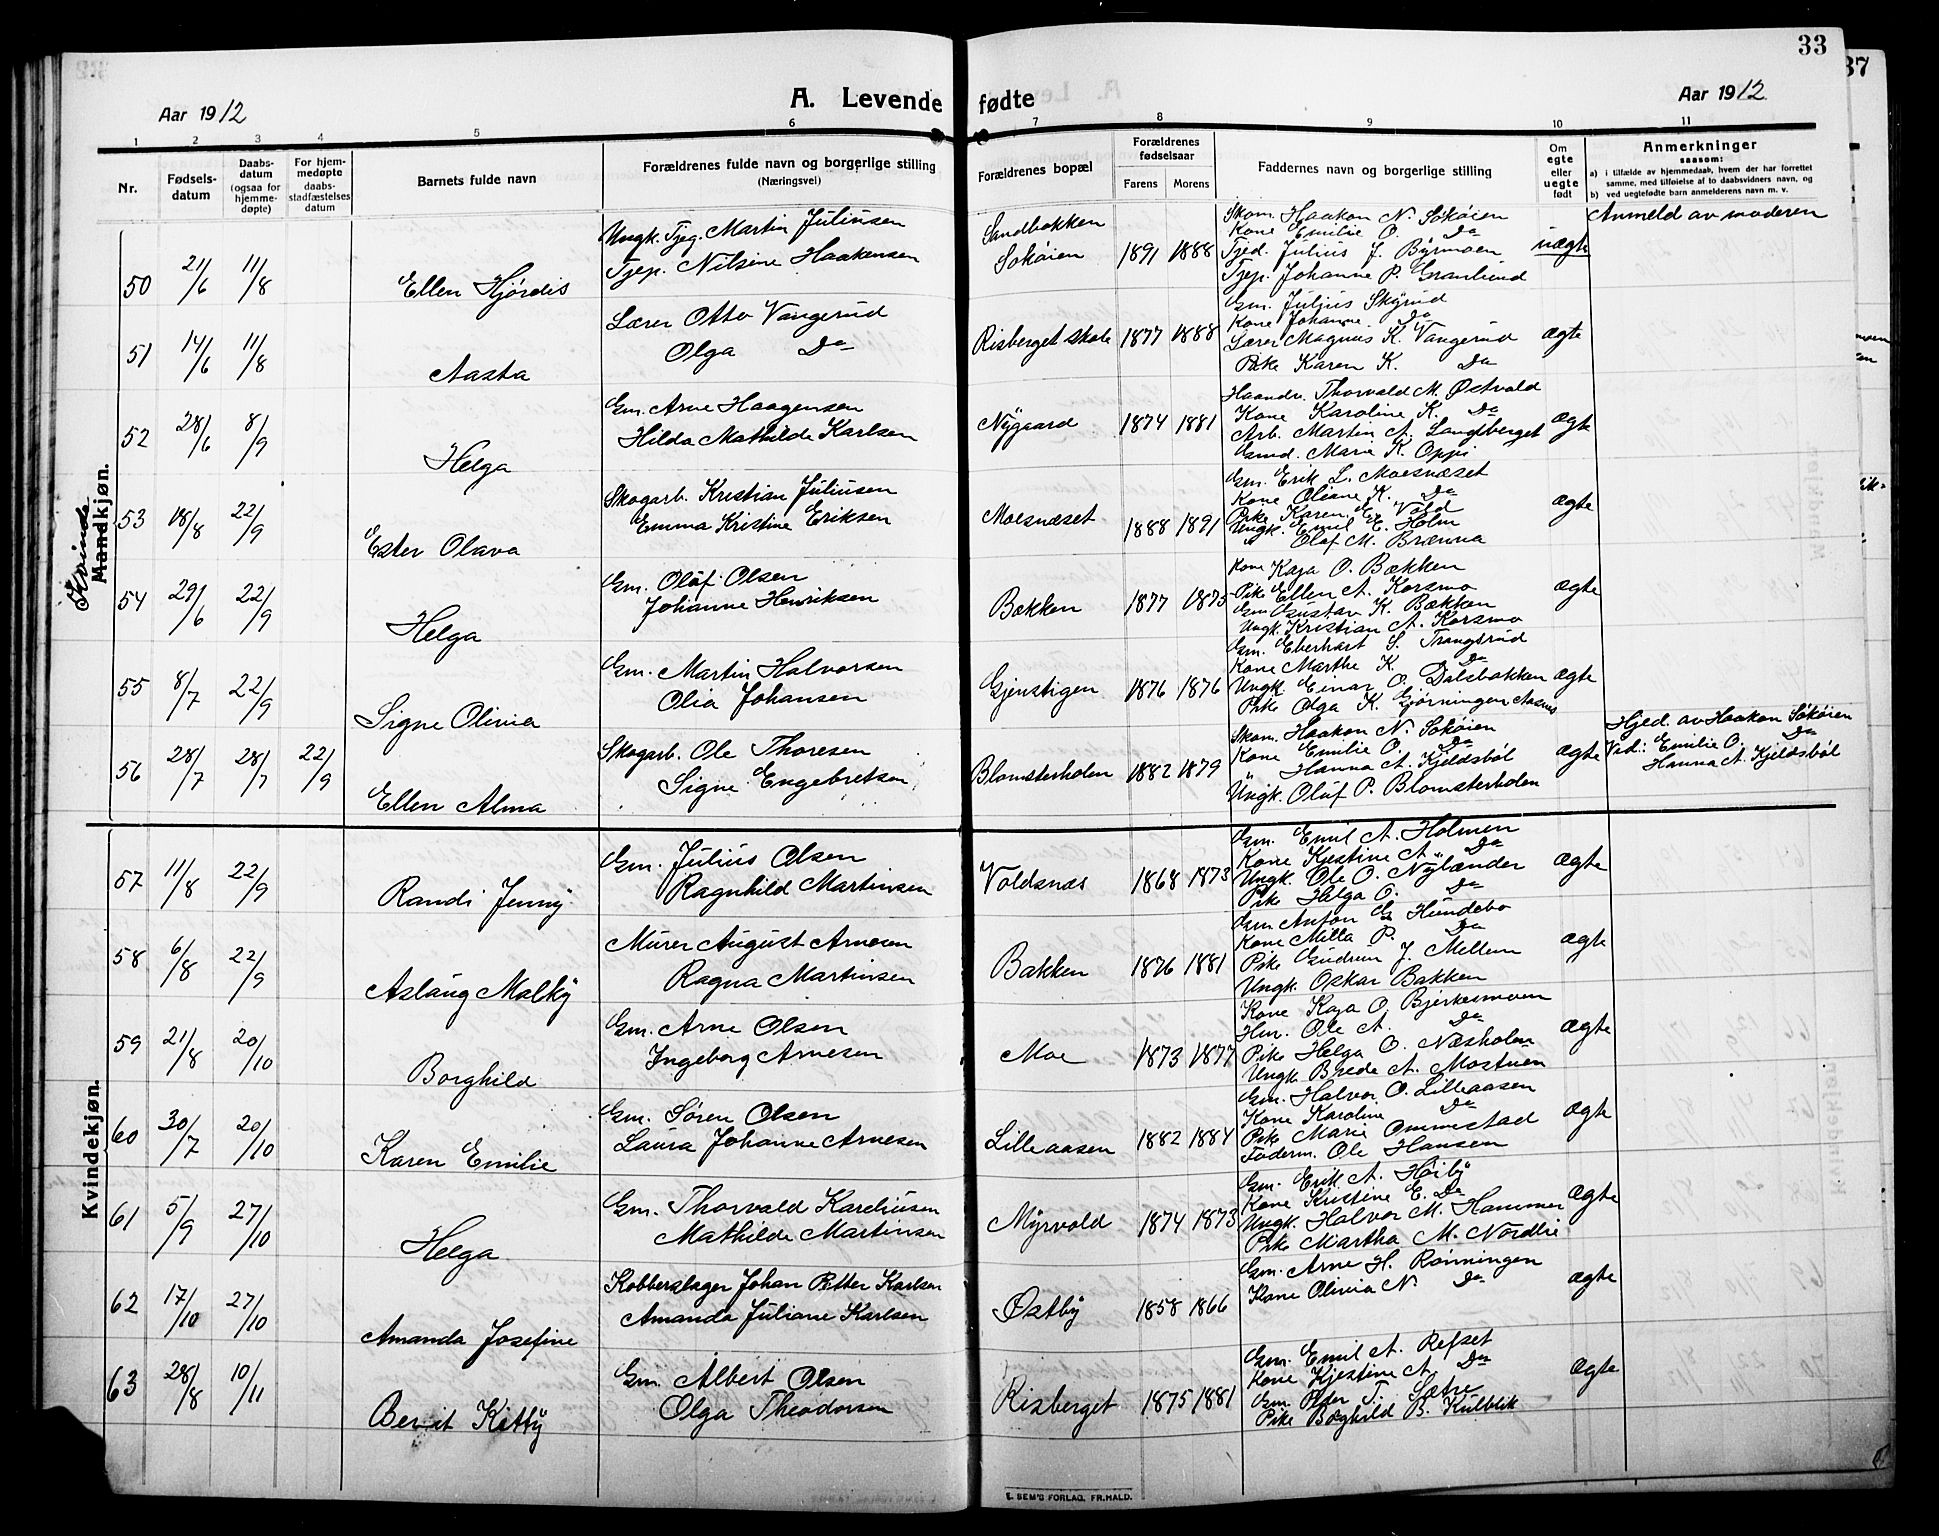 33
37
Aar 1912
A. Levende fødte
Aar 1912
1 2 3 4 5 6 7 8 9 10 11
Nr.
Fødsels-
datum
Daabs-
datum
(ogsaa for
hjemme-
døpte)
For hjem-
medøpte
daabs-
stadfæstelses
datum
Barnets fulde navn
Forældrenes fulde navn og borgerlige stilling
(Næringsvei)
Forældrenes bopæl
Forældrenes
fødselsaar
Farens
Morens
Faddernes navn og borgerlige stilling
Om
egte
eller
uegte
født
Anmerkninger
saasom:
a) i tilfælde av hjemmedaab, hvem der har forrettet
samme, med tilføielse af to daabsvidners navn, og
b) ved uegtefødte barn anmelderens navn m. v.
Kvinde
Mandkjøn.
50 21/6 11/8 Ellen Hjørdis
Ungk. Tjeg. Martin Juliusen
Tjep. Nilsine Haakensen
Sandbakken
Sokøien 1891 1888
Skom. Haakon N. Sokøien
Kone Emilie O. Do
Tjed. Julius J. Byrmoen
Tjep. Johanne P. Granlund
uægte
Anmeld av moderen
51 14/6 11/8 Aasta
Lærer Otto Vangerud
Olga Do
Risberget skole 1877 1888
Gm. Julius Skyrud
Kone Johanne Do
Lærer Magnus K. Vangerud
Pike Karen K. Do
ægte
52 28/6 8/9 Helga
Gm. Arne Haagensen
Hilda Mathilde Karlsen
Nygaard 1874 1881
Haandv. Thorvald M. Østvold
Kone Karoline K. Do
Arb. Martin A. Landberget
Gmd. Marie K. Oppi
ægte
53 18/8 22/9 Ester Olava
Skogarb. Kristian Juliusen
Emma Kristine Eriksen
Moesnæset 1888 1891
Gm. Erik L. Moesnæset
Kone Oliane K. Do
Pike Karen E. Vold
Ungk. Emil E. Holm
" Olaf M. Brænna
ægte
54 29/6 22/9 Helga
Gm. Olaf Olsen
Johanne Henriksen
Bækken 1877 1875
Kone Kaja O. Bækken
Pike Ellen A. Korsmo
Gm Gustav K. Bækken
Ungk. Kristian A. Korsmo
ægte
55 8/7 22/9 Signe Olivia
Gm. Martin Halvorsen
Olia Johansen
Gjenstigen 1876 1876
Gm. Eberhart S. Trangsrud
Kone Marthe K. Do
Ungk. Einar O. Dalsbakken
Pike Olga K. Gjørningen Aasnes
ægte
56 28/7 28/7 22/9 Ellen Alma
Skogarb. Ole Thoresen
Signe Engebretsen
Blomsterholen 1882 1879
Skom. Haakon N. Sokøien
Kone Emilie O. Do
" Hanna A. Kjeldsbøl
Ungk. Oluf P. Blomsterholen
ægte
Hjed. av Haakon Sokøien
Vid.: Emilie O. Do
Hanna A. Kjeldsbøl
Kvindekjøn.
57 11/8 22/9 Randi Jenny
Gm. Julius Olsen
Ragnhild Martinsen
Voldsnæs 1868 1873
Gm. Emil A. Holmen
Kone Kjestine A. Do
Ungk. Ole O. Nylænder
Pike Helga O. Do
ægte
58 6/8 22/9 Aslaug Malky
Murer August Arnesen
Ragna Martinsen
Bakken 1876 1881
Gm Anton G. Hundebo
Kone Milla P. Do
Pike Gudrun J. Mellem
Ungk. Oskar Bakken
ægte
59 21/8 20/10 Borghild
Gm. Arne Olsen
Ingeborg Arnesen
Moe 1873 1877
Kone Kaja O. Bjerkesmoen
Hm. Ole A. Do
Pike Helga O. Næsholm
Ungk. Brede A. Mostuen
ægte
60 30/7 20/10 Karen Emilie
Gm. Søren Olsen
Laura Johanne Arnesen
Lilleaasen 1882 1884
Gm. Halvor O. Lilleaasen
Kone Karoline Do
Pike Marie Ommestad
Foderm. Ole Hansen
ægte
61 5/9 27/10 Helga
Gm. Thorvald Kareliusen
Mathilde Martinsen
Myrvold 1874 1873
Gm. Erik A. Høiby
Kone Kristine E. Do
Ungk. Halvor M. Hammer
Pike Martha M. Nordlie
ægte
62 17/10 27/10 Amanda Josefine
Kobberslager Johan Petter Karlsen
Amanda Juliane Karlsen
Østby 1858 1866
Gm. Arne H. Rønningen
Kone Olivia N. Do
ægte
63 28/8 10/11 Berit Kitty
Gm. Albert Olsen
Olga Theodorsen
Risberget 1875 1881
Gm. Emil A. Refset
Kone Kjestine A. Do
Gm. Peter T. Sætre
Pike Borghild B. Kulblik
ægte
E. SEM'S FORLAG, FR.HALD.